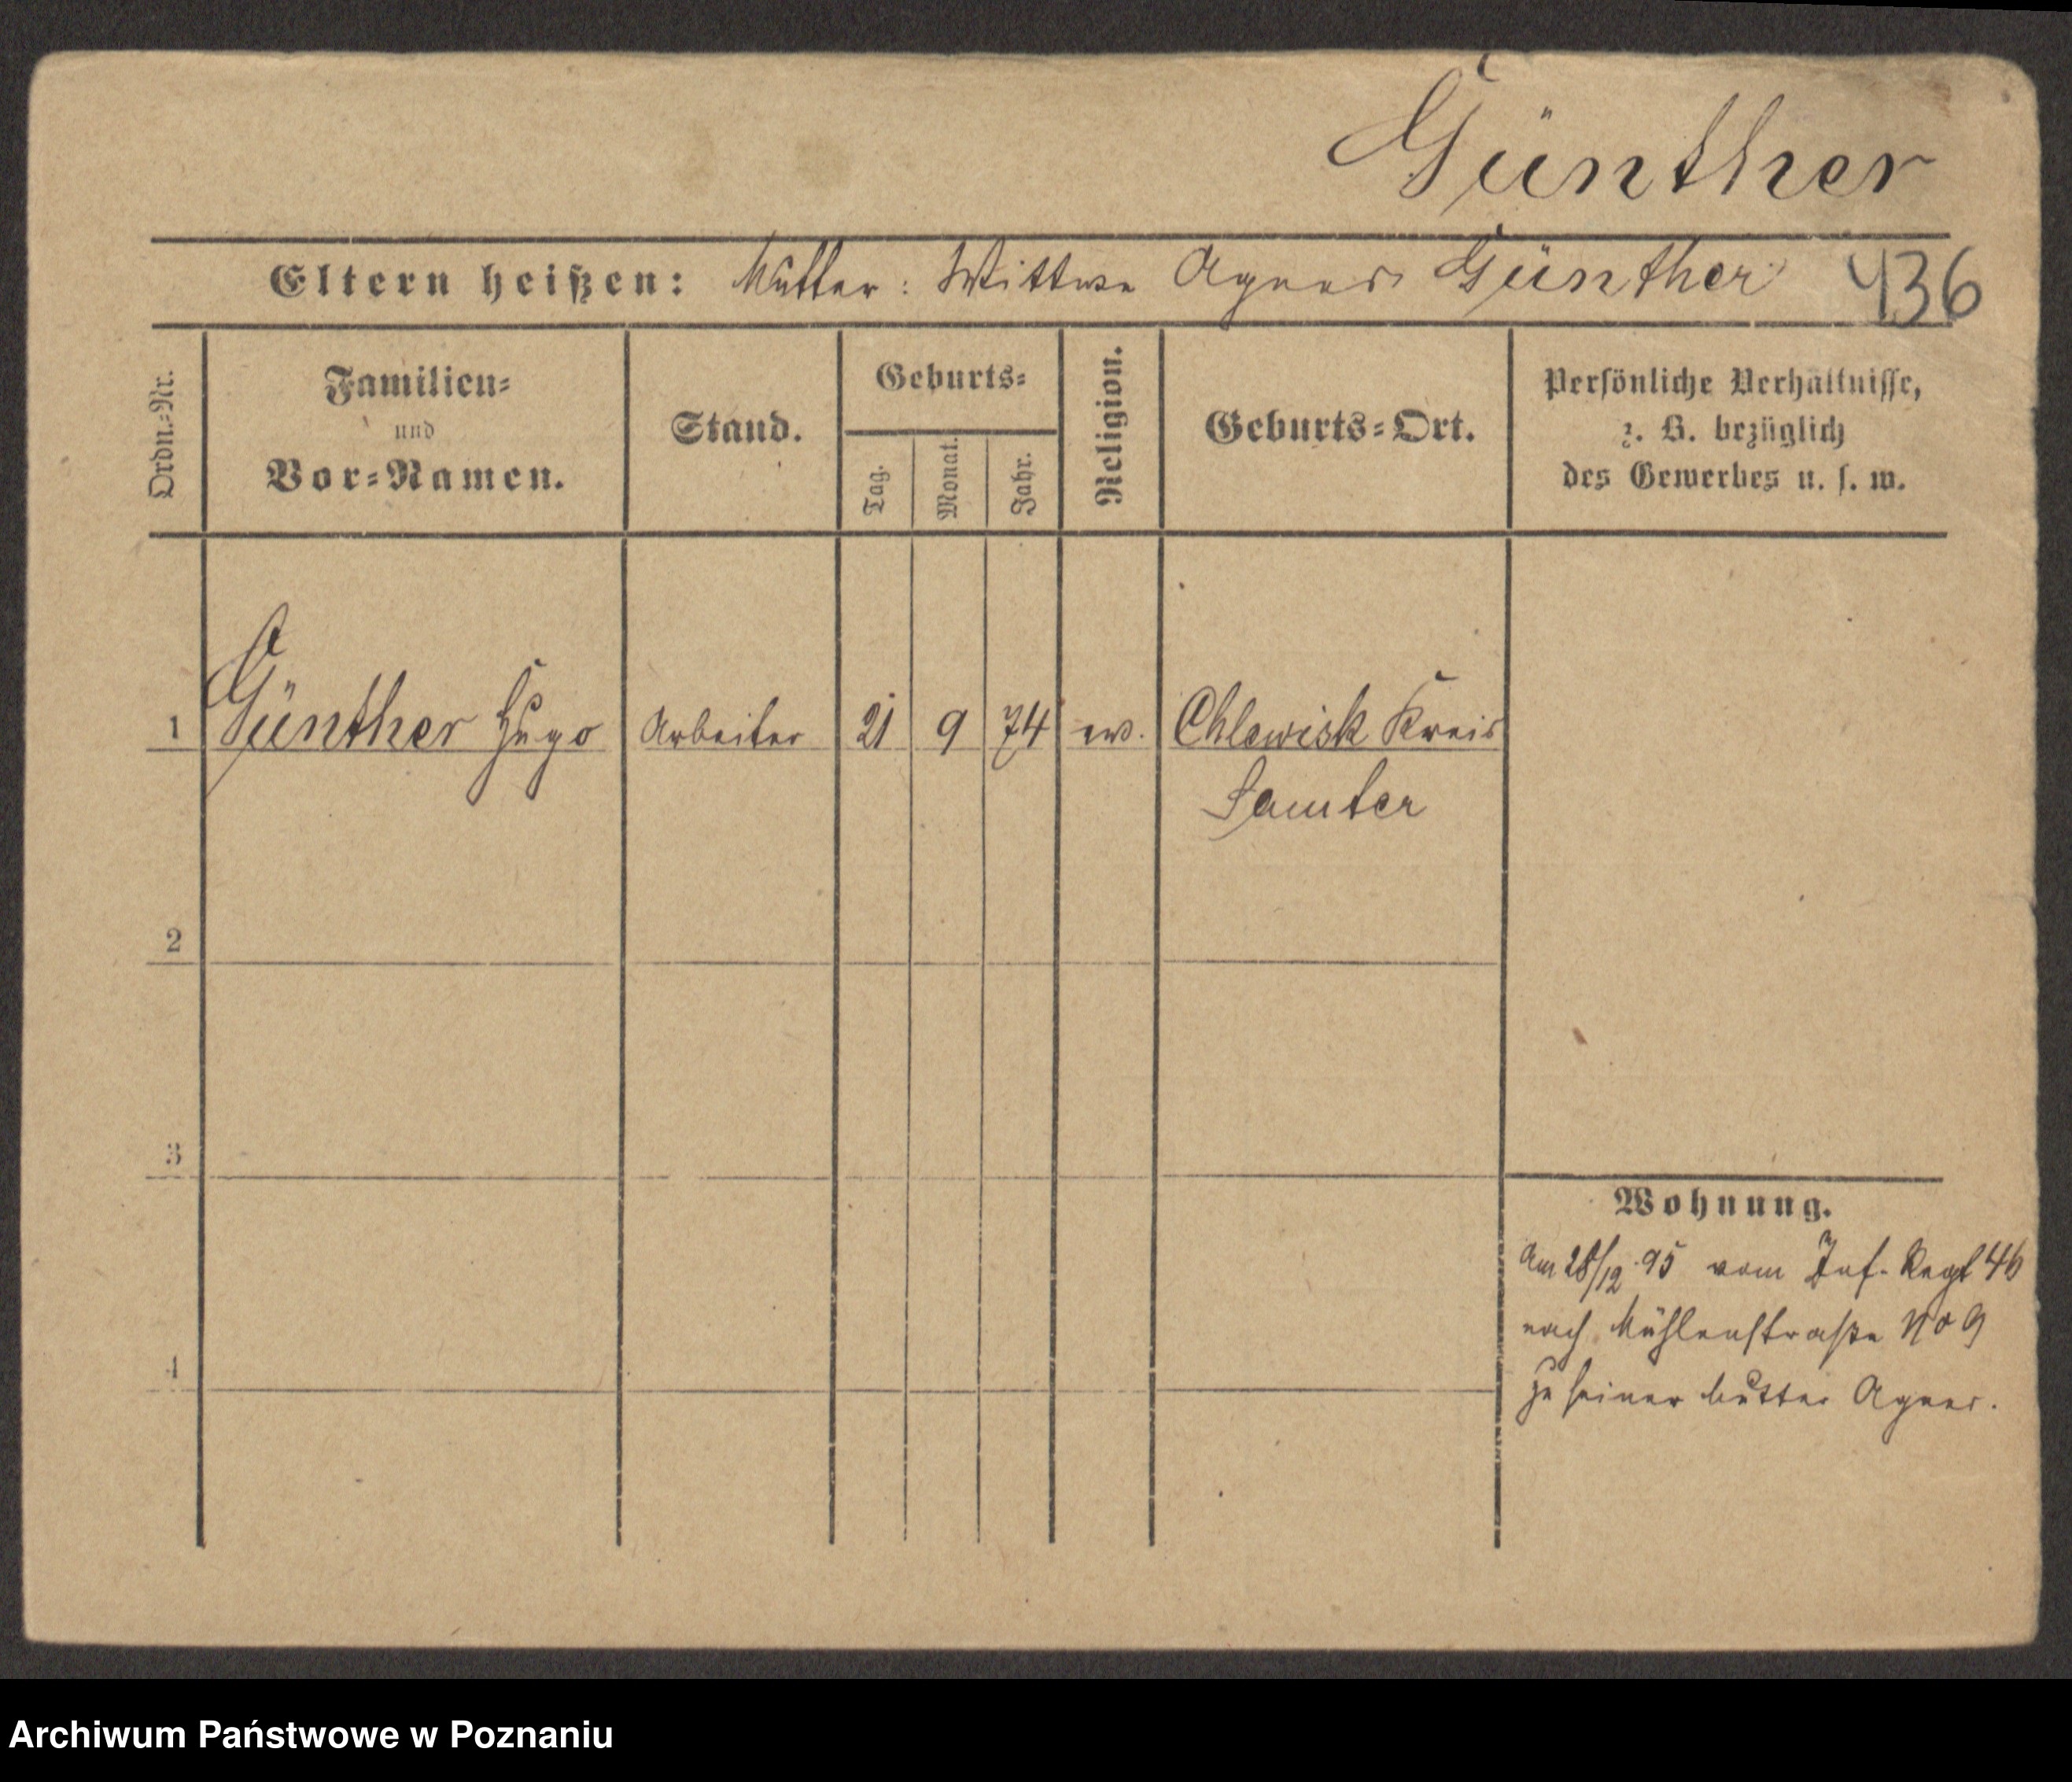 Günther
Eltern heißen: Mutter: Wittwe Agnes Günther 436
Ordn.=Nr.
Familien=
und
Vor=Namen.
Stand.
Geburts=
Tag.
Monat.
Jahr.
Religion.
Geburts=Ort.
Persönliche Verhältnisse,
z. B. bezüglich
des Gewerbes u. s. w.
1 Günther Hugo Arbeiter 21 9 74 ev. Chlewisk Kreis
Samter
2
3
4
Wohnung.
Am 28/12.95 vom Inf. Regt 46
nach Mühlenstraße No 9
zu seiner Mutter Agnes.
Archiwum Państwowe w Poznaniu